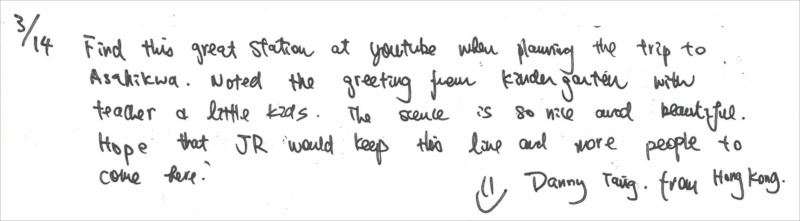 3/14
Find this great station at youtube when planning the trip to
Asahikwa. Noted the greeting from kinder garten with
teacher & little kids. The scence is so nice and beautiful.
Hope that JR would keep this line and more people to
come here.
Danny Tang. from Hong Kong.